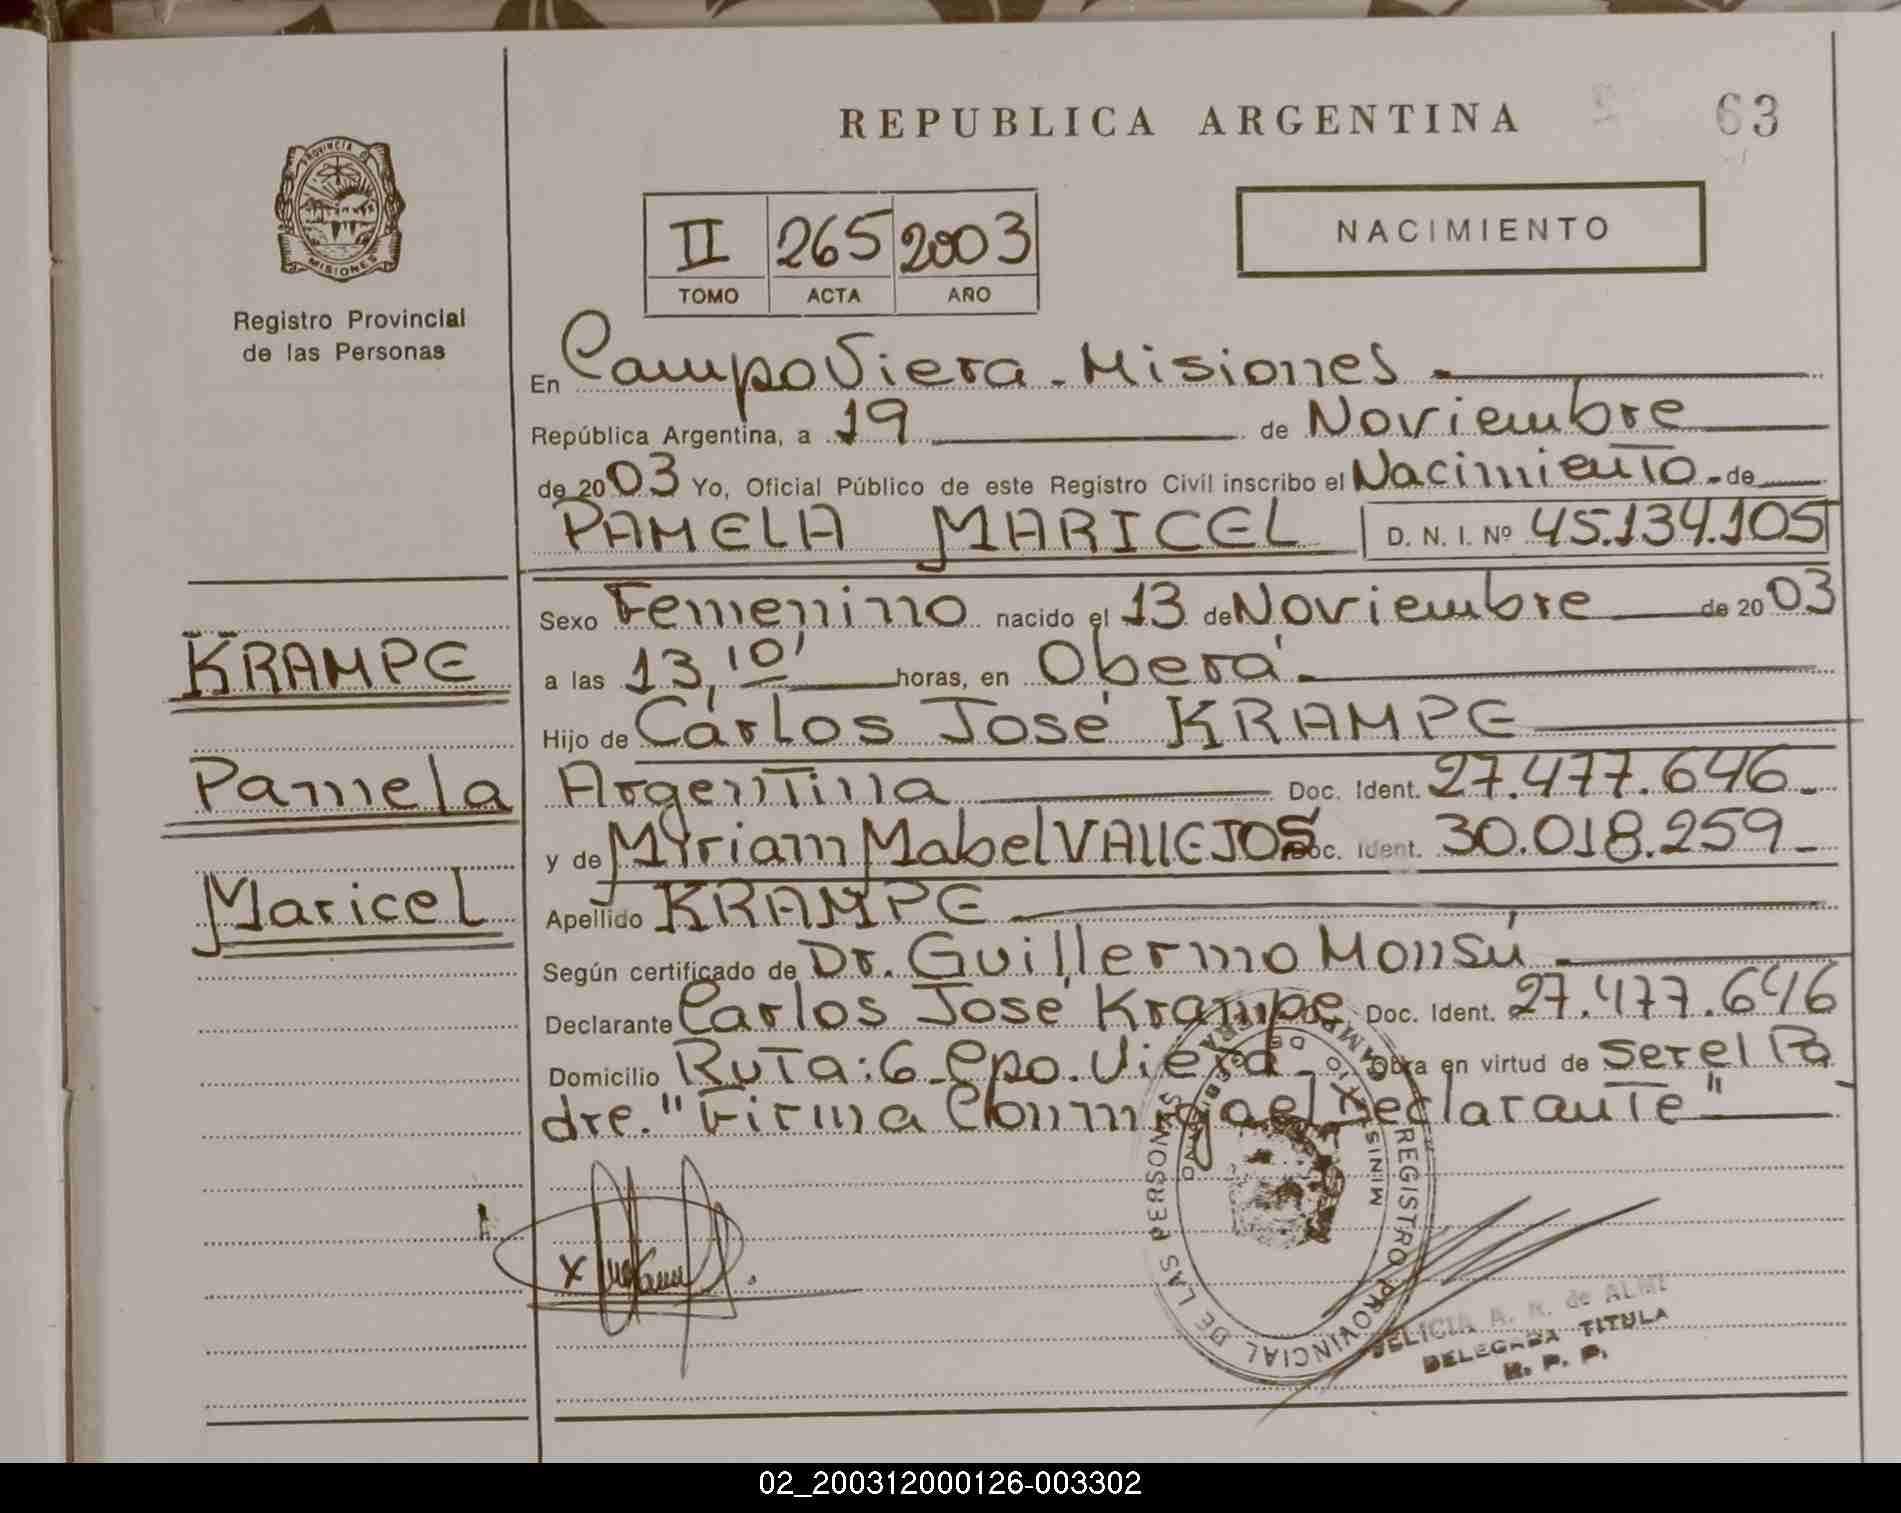 REPUBLICA ARGENTINA
63
PROVINCIA DE
MISIONES
Registro Provincial
de las Personas
II 265 2003
TOMO ACTA AÑO
NACIMIENTO
En Campo Viera - Misiones
República Argentina, a 19 de Noviembre
de 2003 Yo, Oficial Público de este Registro Civil inscribo el Nacimiento - de
PAMELA MARICEL D. N. I. Nº 45.134.105
Sexo Femenino nacido el 13 de Noviembre de 2003
a las 13,10' horas, en Oberá
Hijo de Carlos José KRAMPE
Argentina Doc. Ident. 27.477.646
y de Myriam Mabel VALLEJOS Doc. Ident. 30.018.259
Apellido KRAMPE
Según certificado de Dr. Guillermo Monsú
Declarante Carlos José Krampe Doc. Ident. 27.477.646
Domicilio Ruta: 6 - Cpo. Viera - Obra en virtud de ser el Pa
dre. "Firma Conmigo el Declarante"
KRAMPE
Pamela
Maricel
REGISTRO PROVINCIAL DE LAS PERSONAS
FELICIA A. R. de ALME
DELEGADA TITULA
R. P. P.
02_200312000126-003302